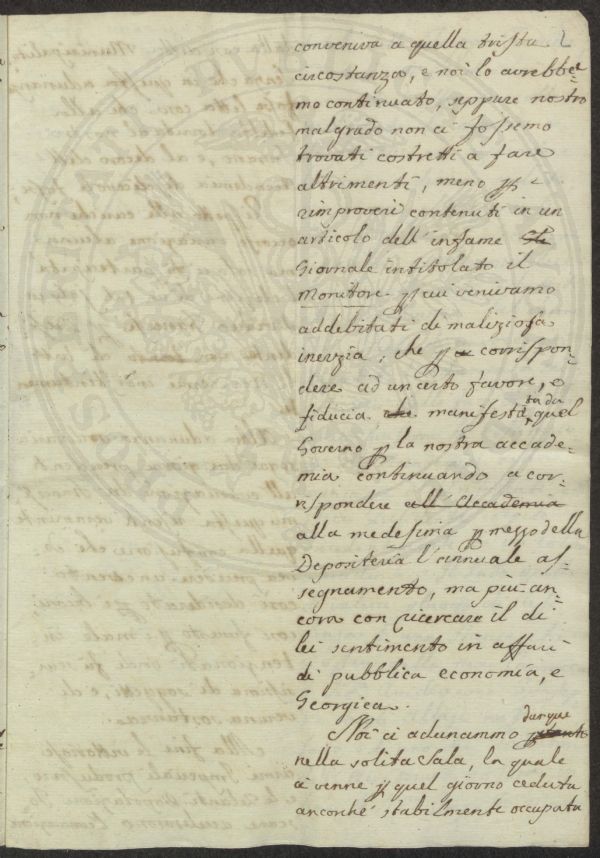 2
conveniva a quella trista
circostanza, e noi lo avrebbe=
mo continuato, seppure nostro
malgrado non ci fossemo
trovati costretti a fare
altrimenti, meno p i
rimproveri contenuti in un
articolo dell' infame
Giornale intitolato il
Monitore p cui venivamo
addebitati di maliziosa
inerzia, che p corrispon=
dere ad un certo favore, e
fiducia che manifestata da quel
Governo p la nostra accade=
mia continuando a cor=
rispondere all' Accademia
alla medesima p mezzo della
Depositeria l'annuale as=
segnamento, ma più an=
cora con ricercare il di
lei sentimento in affari
di pubblica economia, e
Georgica.
Noi ci adunammo dunque
nella solita Sala, la quale
ci venne p quel giorno ceduta
ancorché stabilmente occupata